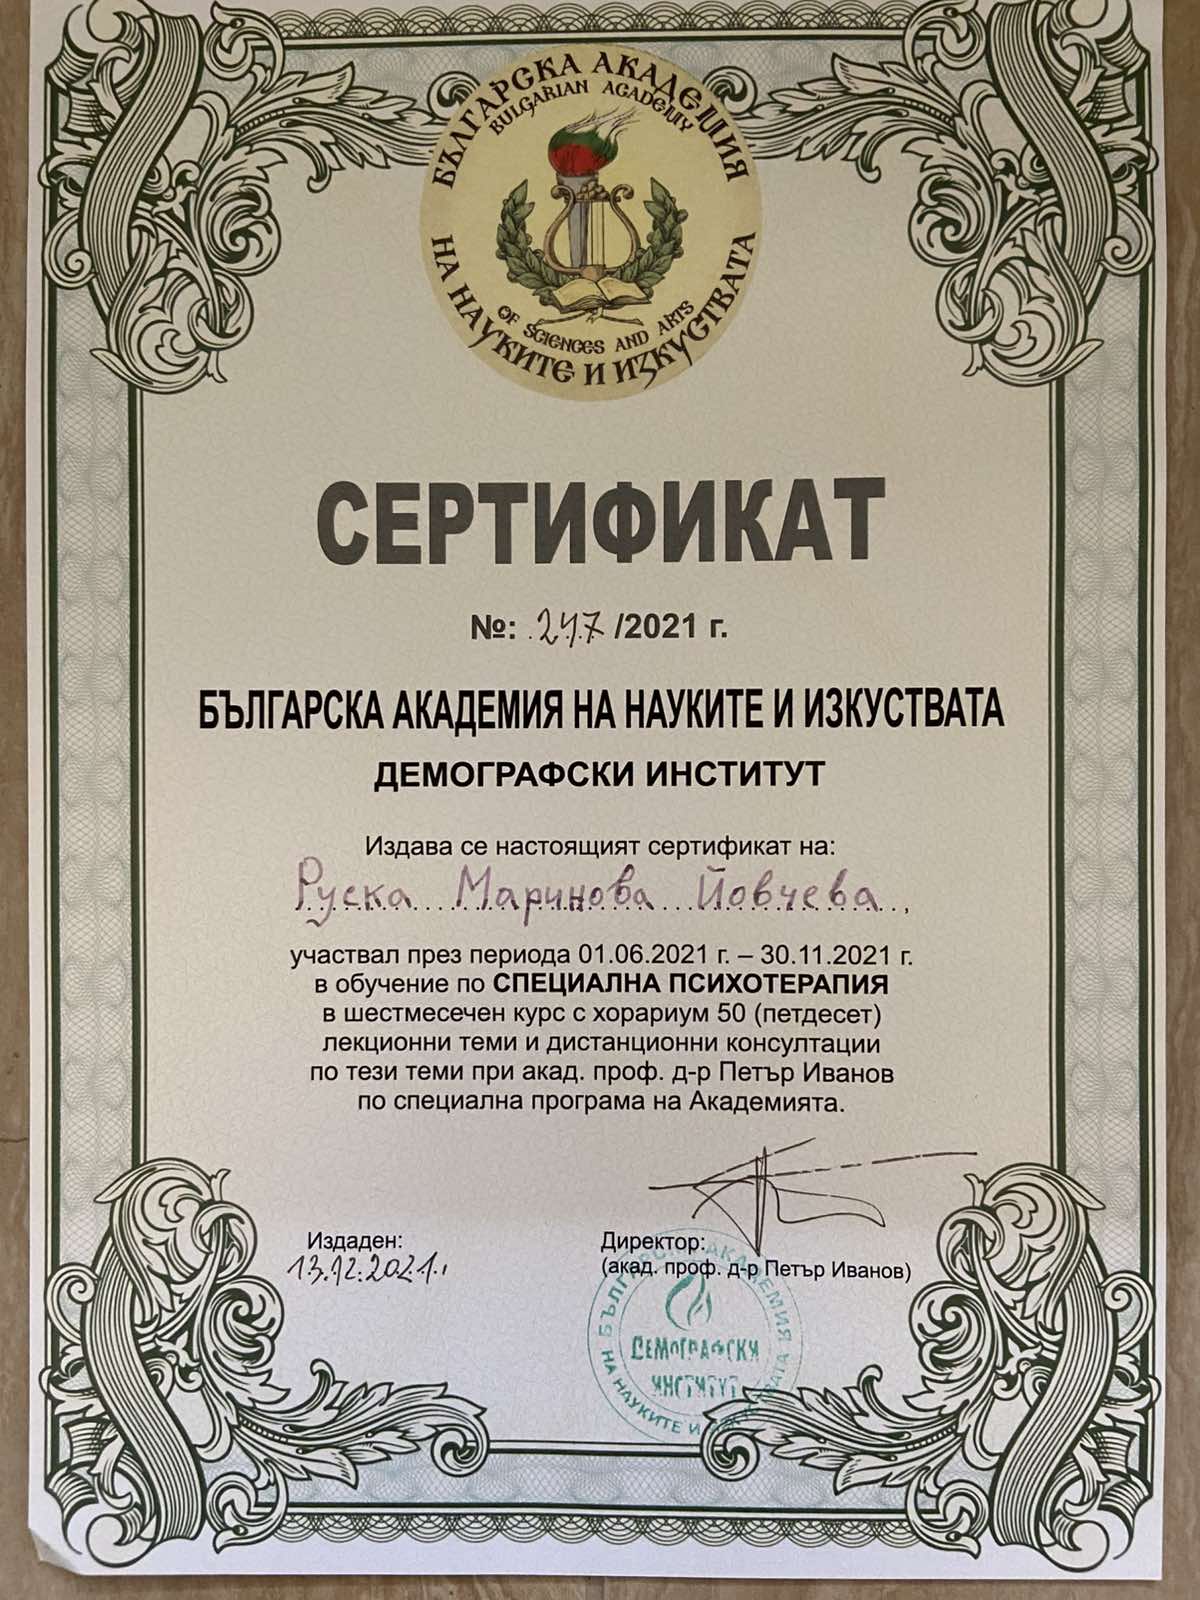 БЪЛГАРСКА АКАДЕМИЯ
BULGARIAN ACADEMY
OF SCIENCES AND ARTS
НА НАУКИТЕ И ИЗКУСТВАТА
СЕРТИФИКАТ
№: 247 /2021 г.
БЪЛГАРСКА АКАДЕМИЯ НА НАУКИТЕ И ИЗКУСТВАТА
ДЕМОГРАФСКИ ИНСТИТУТ
Издава се настоящият сертификат на:
Руска Маринова Йовчева,
участвал през периода 01.06.2021 г. – 30.11.2021 г.
в обучение по СПЕЦИАЛНА ПСИХОТЕРАПИЯ
в шестмесечен курс с хорариум 50 (петдесет)
лекционни теми и дистанционни консултации
по тези теми при акад. проф. д-р Петър Иванов
по специална програма на Академията.
Издаден:
13.12.2021г.
Директор:
(акад. проф. д-р Петър Иванов)
БЪЛГАРСКА АКАДЕМИЯ
НА НАУКИТЕ И ИЗКУСТВАТА
ДЕМОГРАФСКИ
ИНСТИТУТ